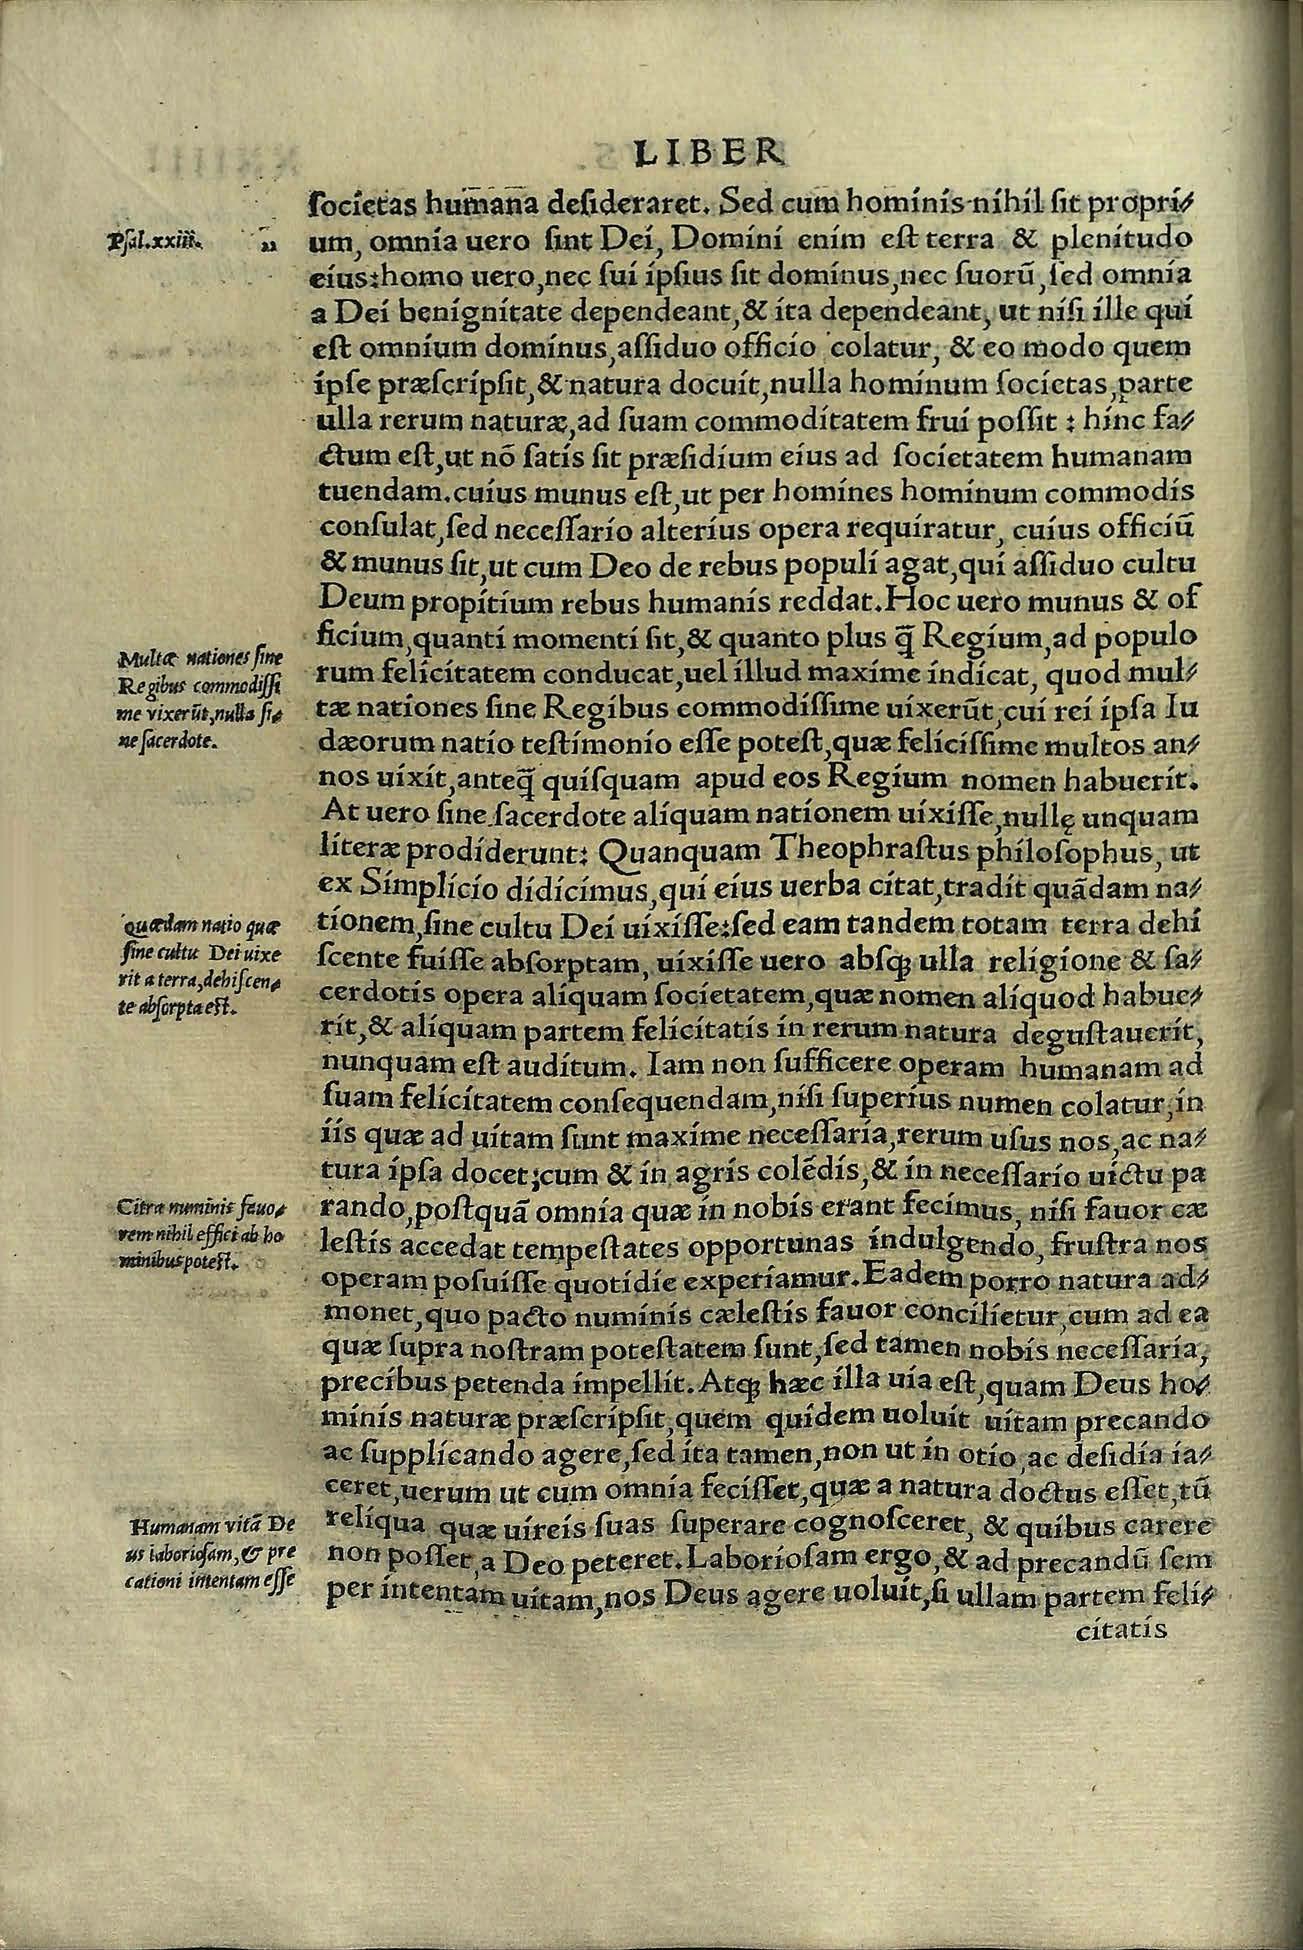 LIBER
societas hum̄ana desideraret. Sed cum hominis nihil sit propri⸗
Psal. xxiii. „ um, omnia uero sint Dei, Domini enim est terra & plenitudo
eius: homo uero, nec sui ipsius sit dominus, nec suorū, sed omnia
a Dei benignitate dependeant, & ita dependeant, ut nisi ille qui
est omnium dominus, assiduo officio colatur, & eo modo quem
ipse præscripsit, & natura docuit, nulla hominum societas, parte
ulla rerum naturæ, ad suam commoditatem frui possit: hinc fa⸗
ctum est, ut nō satis sit præsidium eius ad societatem humanam
tuendam. cuius munus est, ut per homines hominum commodis
consulat, sed necessario alterius opera requiratur, cuius officiū
& munus sit, ut cum Deo de rebus populi agat, qui assiduo cultu
Deum propitium rebus humanis reddat. Hoc uero munus & of
ficium, quanti momenti sit, & quanto plus q̄ Regium, ad populo
rum felicitatem conducat, uel illud maxime indicat, quod mul⸗
tæ nationes sine Regibus commodissime uixerūt, cui rei ipsa Iu
dæorum natio testimonio esse potest, quæ felicissime multos an⸗
nos uixit, anteq̄ quisquam apud eos Regium nomen habuerit.
Multæ nationes sine
Regibus commodissi
me vixerūt, nulla si⸗
ne sacerdote.
At uero sine sacerdote aliquam nationem uixisse, nullę unquam
literæ prodiderunt: Quanquam Theophrastus philosophus, ut
ex Simplicio didicimus, qui eius uerba citat, tradit quādam na⸗
tionem, sine cultu Dei uixisse: sed eam tandem totam terra dehi
scente fuisse absorptam, uixisse uero absq; ulla religione & sa⸗
cerdotis opera aliquam societatem, quæ nomen aliquod habue⸗
rit, & aliquam partem felicitatis in rerum natura degustauerit,
Quædam natio quæ
sine cultu Dei uixe
rit a terra, dehiscen⸗
te absorpta est.
nunquam est auditum. Iam non sufficere operam humanam ad
suam felicitatem consequendam, nisi superius numen colatur, in
iis quæ ad uitam sunt maxime necessaria, rerum usus nos, ac na⸗
tura ipsa docet; cum & in agris colēdis, & in necessario uictu pa
rando, postquā omnia quæ in nobis erant fecimus, nisi fauor cæ
lestis accedat tempestates opportunas indulgendo, frustra nos
operam posuisse quotidie experiamur. Eadem porro natura ad⸗
Citra numinis fauo⸗
rem nihil effici ab ho
minibus potest.
monet, quo pacto numinis cælestis fauor concilietur, cum ad ea
quæ supra nostram potestatem sunt, sed tamen nobis necessaria,
precibus petenda impellit. Atq; hæc illa uia est, quam Deus ho⸗
minis naturæ præscripsit, quem quidem uoluit uitam precando
ac supplicando agere, sed ita tamen, non ut in otio, ac desidia ia⸗
ceret, uerum ut cum omnia fecisset, quæ a natura doctus esset, tū
reliqua quæ uireis suas superare cognosceret, & quibus carere
non posset, a Deo peteret. Laboriosam ergo, & ad precandū sem
per intentam uitam, nos Deus agere uoluit, si ullam partem feli⸗
Humanam vitā De
us laboriosam, & pre
cationi intentam esse
citatis